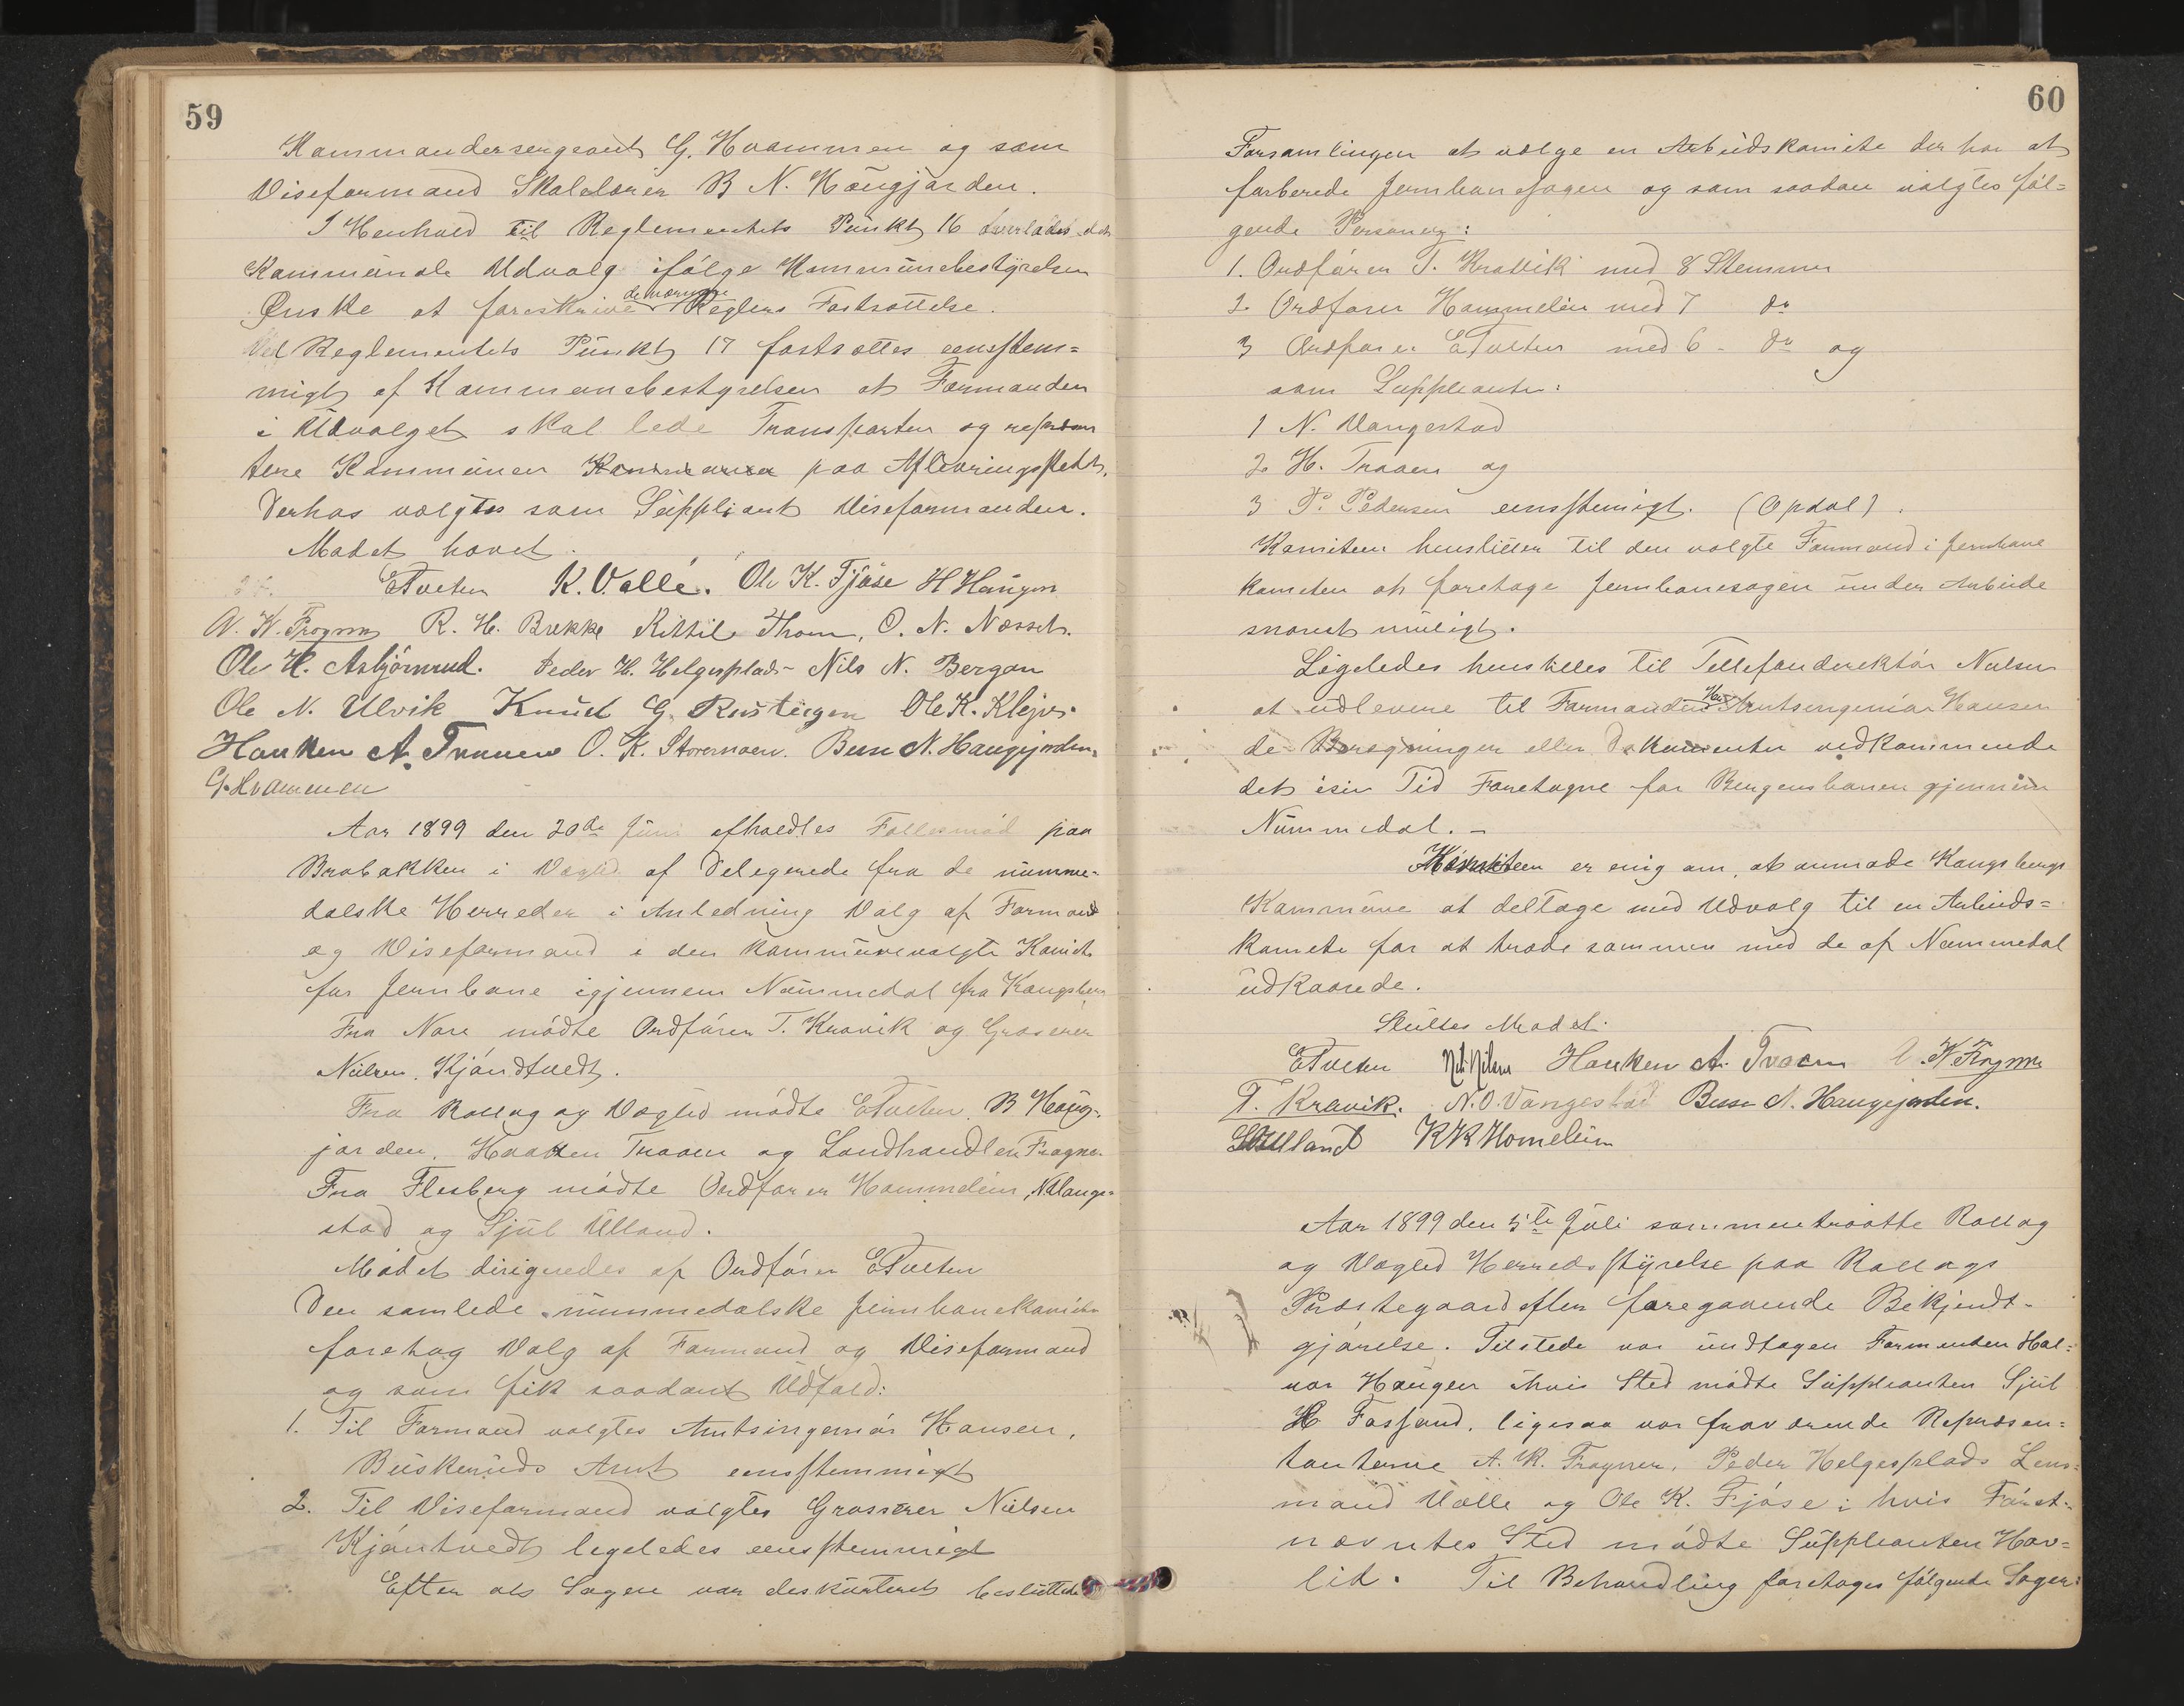 59
Kommandersergeant G. Hvammen og som
Viseformand Skolelærer B N. Haugjorden.
I Henhold til Reglementets Punkt 16 overlades det
Kommunale Udvalg ifølge Kommunebestyrelsen
Ønske at foreskrive de nærmere Reglers Fastsættelse.
Ved Reglementets Punkt 17 fastsattes eenstem=
migt af Kommunebestyrelsen at Formanden
i Udvalget skal lede Transporten og repræsen
tere Kommunen paa Afleveringsstedet.
Derhos valgtes som Suppliant Viseformanden.
Mødet hævet.
ETveten K. Vallé. Ole K. Fjøse H Haugen
A. K. Frogner R. H. Brekke Kittil Thoen, O. N. Næsset.
Ole H. Asbjørnrud. Peder H. Helgesplads Nils N. Bergan
Ole N. Ulvik Knud G. Rusteigen Ole K. Klejve.
Haaken A. Traaen O. K. Storemoen. Besse N. Haugjorden.
G. Hvammen
Aar 1899 den 20de Juni afholdtes Fællesmød paa
Brobakken i Vægli af Delegerede fra de numme=
dalske Herreder i Anledning Valg af Formand
og Viseformand i den kommunevalgte Komite
for Jernbane igjennem Nummedal fra Kongsberg
Fra Nore mødte Ordfører T. Kravik og Grosserer
Nielsen, Kjøndtvedt.
Fra Rollag og Vægli mødte ETveten, B Haug-
jorden, Haaken Traaen og Landhandler Frogner
Fra Flesberg mødte Ordfører Hammelien, N Vange=
stad og Sjul Ulland.
Mødet dirigeredes af Ordfører ETveten
Den samlede nummedalske Jernbanekomite
foretog Valg af Formand og Viseformand
og som fik saadant Udfald:
1. Til Formand valgtes Amtsingeniør Hansen,
Buskeruds Amt eenstemmigt
2. Til Viseformand valgtes Grosserer Nielsen
Kjøntvedt ligeledes eenstemmigt
Efter at Sagen var diskuteret besluttede
60
Forsamlingen at vælge en Arbeidskomite der har at
forberede Jernbanesagen og som saadan valgtes føl=
gende Personer:
1. Ordfører T. Kravik med 8 Stemmer
2. Ordfører Hammelien med 7 do
3 Ordfører ETveten med 6 - do og
som Suppleanter:
1 N. Vangestad
2 H. Traaen og
3 P. Pedersen eenstemigt. (Opdal).
Komiteen henstiller til den valgte Formand i Jernbane
komiteen at foretage Jernbanesagen under Arbeide
snarest muligt.
Ligeledes henstilles til Telefondirektør Nielsen
at udlevere til Formanden Hr Amtsingeniør Hansen
de Beregninger eller Dokumenter vedkommende
det isin Tid Foretagne for Bergensbanen gjennem
Nummedal. -
Komiteen er enig om, at anmode Kongsbergs
Kommune at deltage med Udvalg til en Arbeids=
komite for at træde sammen med de af Nummedal
udkaarede.
Sluttes Mødet.
ETveten Nils Nilsen Haaken A. Traaen A. K Frogner
T. Kravik. N. O. Vangestad Besse N. Haugjorden.
S Ulland K K Homelien
Aar 1899 den 5te Juli sammentraatte Rollag
og Vægli Herredsstyrelse paa Rollags
Præstegaard efter foregaaende Bekjendt-
gjørelse. Tilstede var undtagen Formanden Hal=
vor Haugen ihvis Sted mødte Suppleanten Sjul
H Fossand, ligesaa var fraværende Repræsen=
tanterne A. K. Frogner, Peder Helgesplads Lens=
mand Valle og Ole K. Fjøse i hvis Først-
nævntes Sted mødte Suppleanten Hav=
lid. Til Behandling foretages følgende Sager: